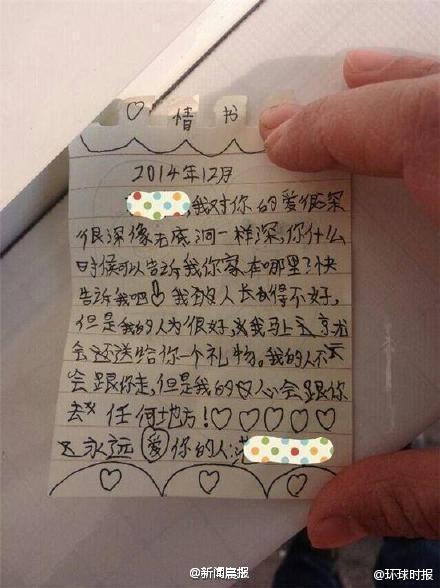 ♡ 情 书
2014年12月
我对你的爱很深
很深像无底洞一样深,你什么
时候可以告诉我你家在哪里?快
告诉我吧!我本人长得不好,
但是我的人为很好,我马上
会还送给你一个礼物。我的人不
会跟你走,但是我的心会跟你
去任何地方!♡♡♡♡♡
永远爱你的人:
@新闻晨报
@环球时报